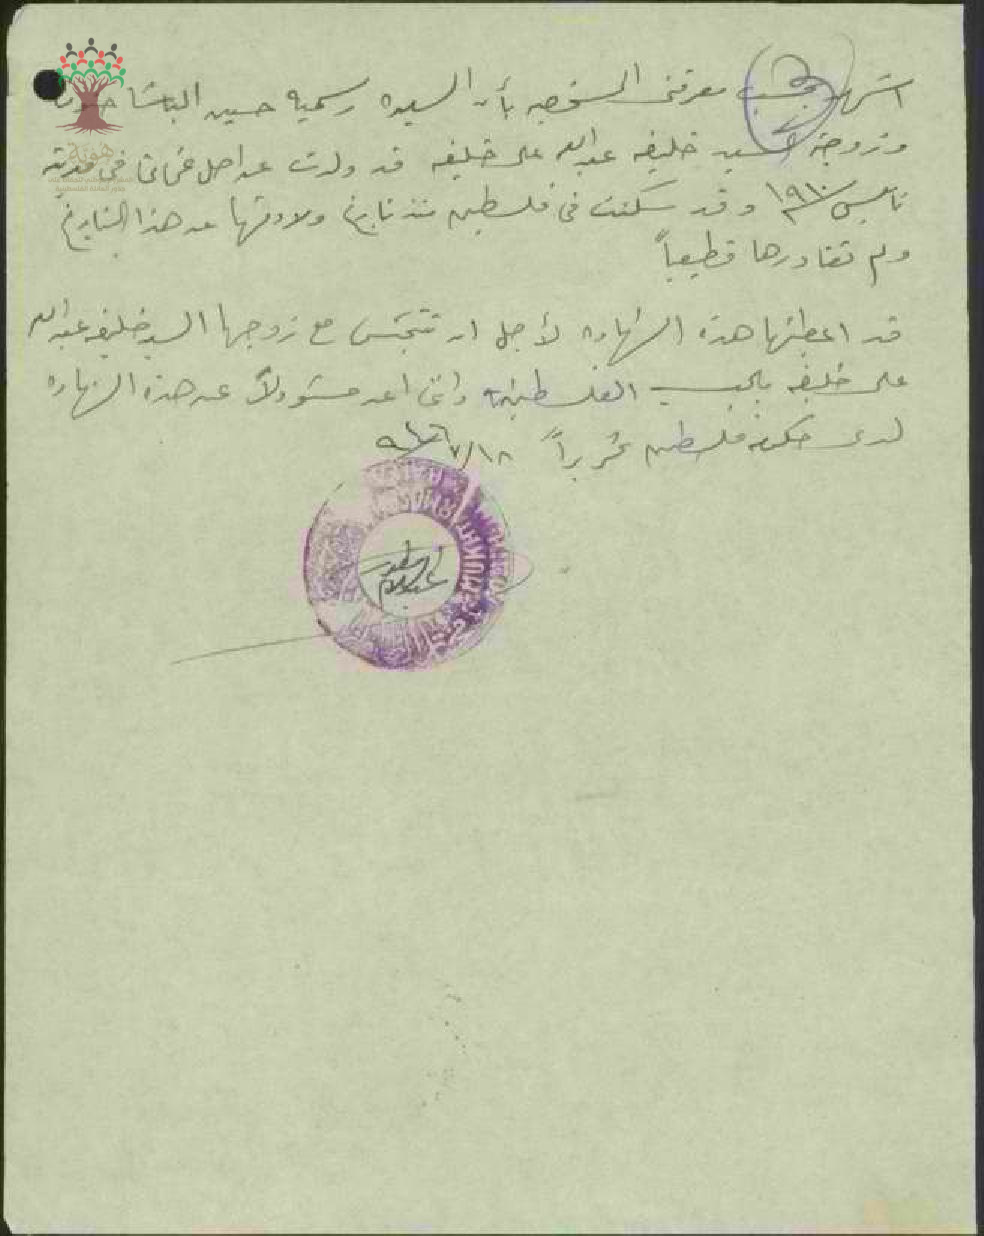 اشهد بحسب معرفتي الشخصيه بأن السيده رسميه حسين الباشا
وزوجة السيد خليفه عبدالله علي خليفه قد ولدت عن اصل عثماني في مدينة
نابلس ١٩١٠ وقد سكنت في فلسطين منذ تاريخ ولادتها عن هذا التاريخ
ولم تغادرها قطيعياً
قد اعطيتها هذه الشهاده لأجل ان تتجنس مع زوجها السيد خليفه عبدالله
علي خليفه بالجنسية الفلسطينية وانني اعد مسؤولاً عن هذه الشهاده
لدى حكومة فلسطين تحريراً
هوية